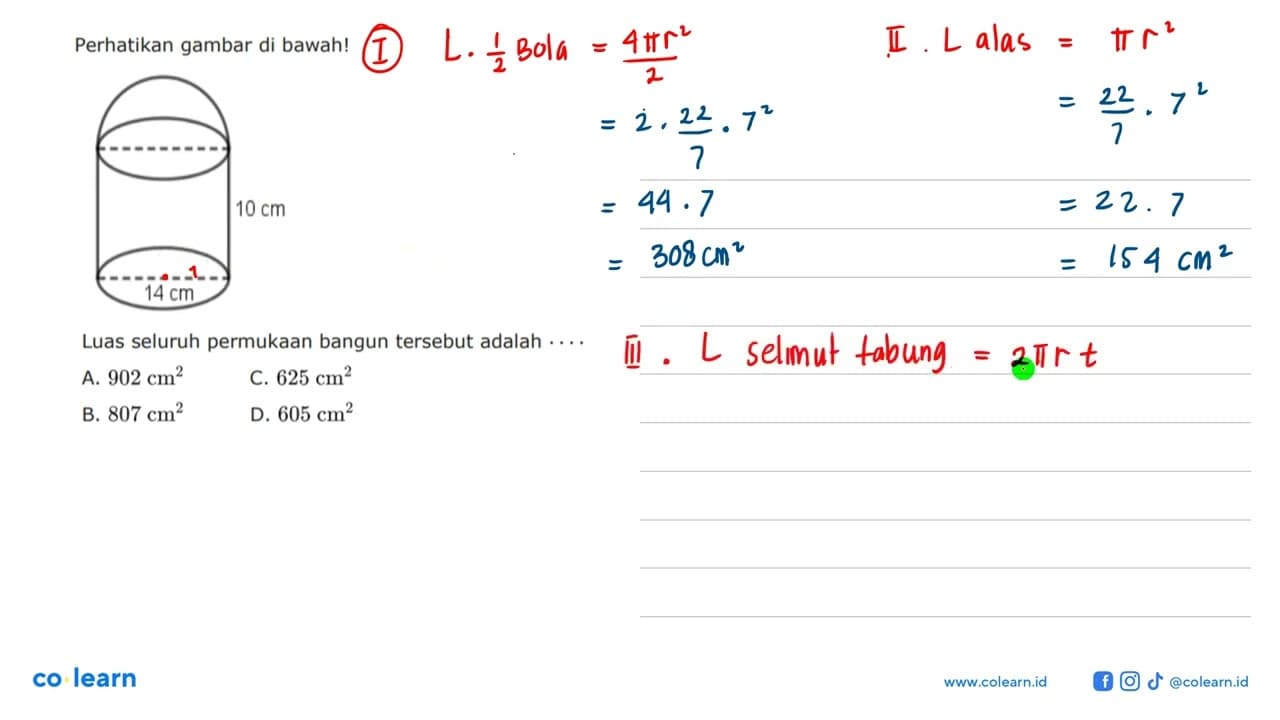 Perhatikan gambar di bawah!
10 cm
7
14 cm
Luas seluruh permukaan bangun tersebut adalah ....
A. 902 cm² C. 625 cm²
B. 807 cm² D. 605 cm²
I L. 1/2 Bola = 4πr²/2
= 2 . 22/7 . 7²
= 44 . 7
= 308 cm²
II . L alas = πr²
= 22/7 . 7²
= 22 . 7
= 154 cm²
III . L selimut tabung = 2πrt
co·learn
www.colearn.id
@colearn.id